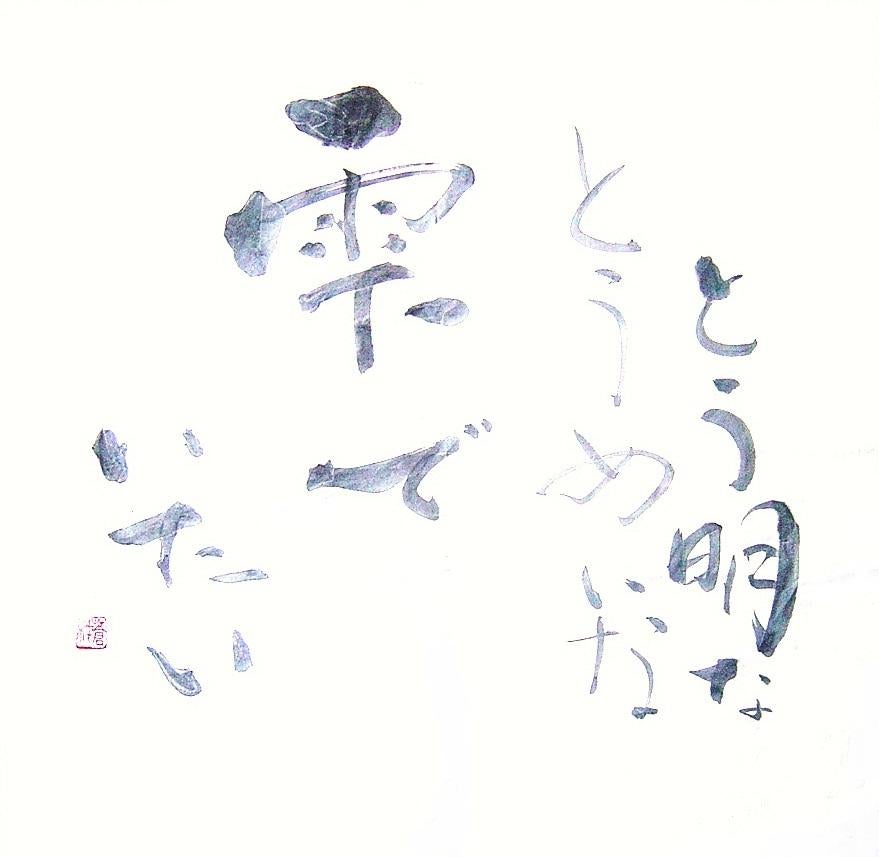 とう明な
とうめいな
雫で
いたい